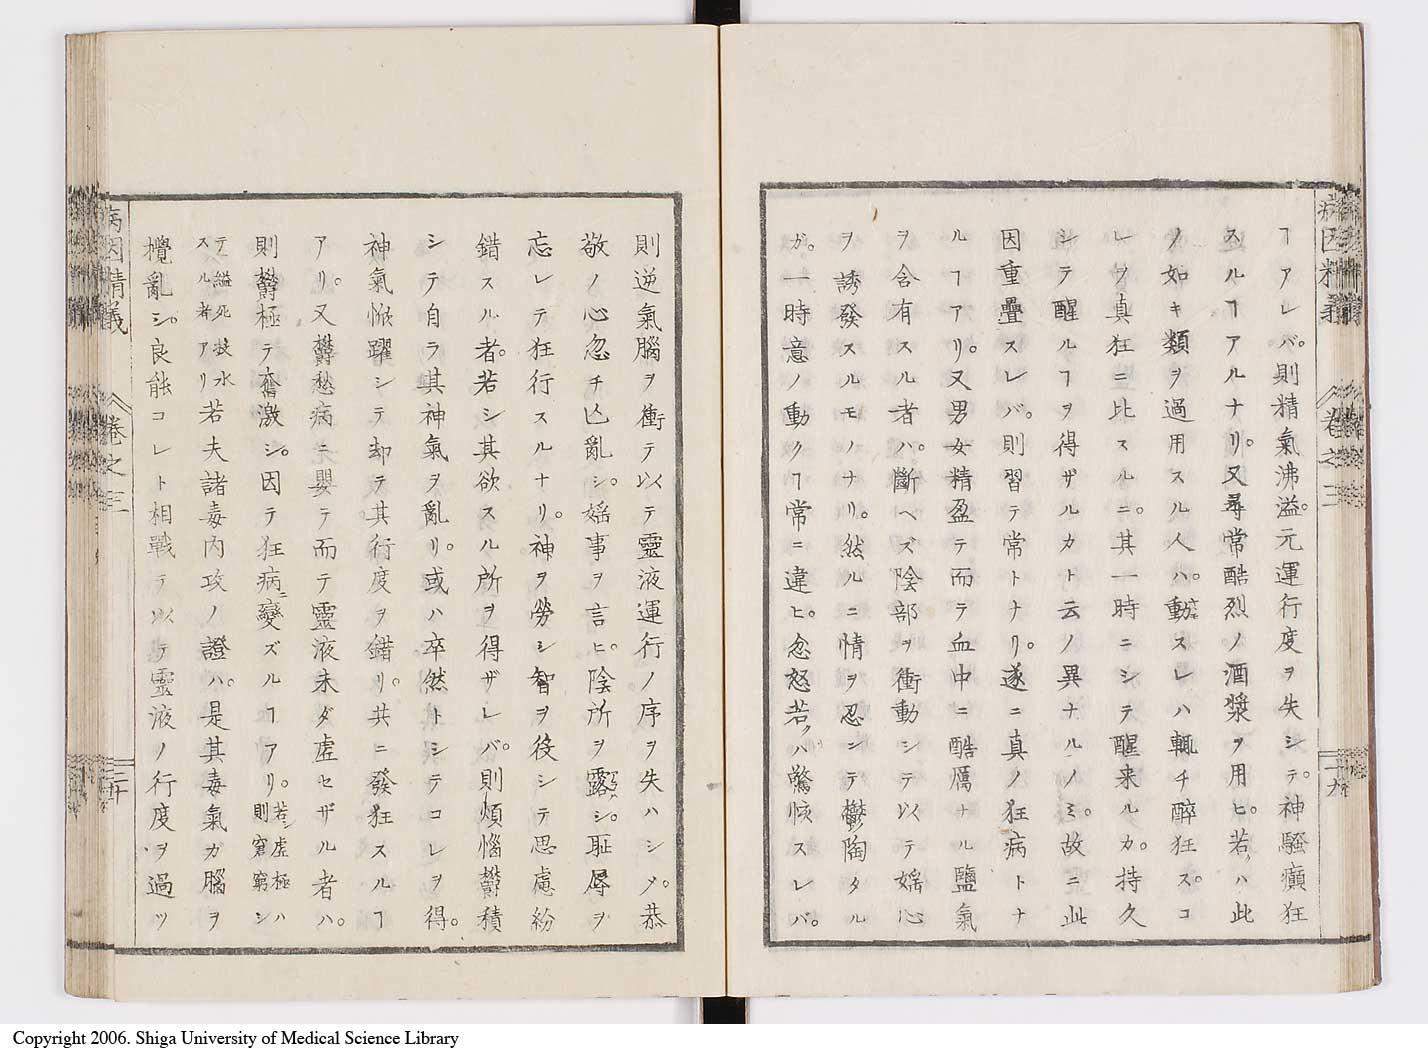 病因精義 卷之三 二十九
ヿアレバ。則精氣沸溢。元運行度ヲ失シテ。神騷癲狂
スルヿアルナリ。又尋常酷烈ノ酒漿ヲ用ヒ。若クハ此
ノ如キ類ヲ過用スル人ハ。動スレハ輒チ醉狂ス。コ
レヲ真狂ニ比スルニ。其一時ニシテ醒来ルカ。持久
シテ醒ルヿヲ得ザルカト云ノ異ナルノミ。故ニ此
因重疊スレバ。則習テ常トナリ。遂ニ真ノ狂病トナ
ルヿアリ。又男女精盈テ而テ血中ニ酷厲ナル鹽氣
ヲ含有スル者ハ。斷ヘズ陰部ヲ衝動シテ以テ婬心
ヲ誘發スルモノナリ。然ルニ情ヲ忍ンテ鬱陶タル
ガ。一時意ノ動クヿ常ニ違ヒ。忿怒若クハ驚愱スレバ。
則逆氣腦ヲ衝テ以テ靈液運行ノ序ヲ失ハシメ。恭
敬ノ心忽チ亾亂シ。婬事ヲ言ヒ。陰所ヲ露シ。恥辱ヲ
忘レテ狂行スルナリ。神ヲ勞シ智ヲ役シテ思慮紛
錯スル者。若シ其欲スル所ヲ得ザレバ。則煩惱鬱積
シテ自ラ其神氣ヲ亂リ。或ハ卒然トシテコレヲ得。
神氣愀躍シテ却テ其行度ヲ錯リ。共ニ發狂スルヿ
アリ。又鬱愁病ニ嬰テ而テ靈液未ダ虛セザル者ハ。
則鬱極テ奮激シ。因テ狂病ニ變ズルヿアリ。若シ虛極ハ則窘窮シ
テ縊死投水スル者アリ若夫諸毒內攻ノ證ハ。是其毒氣ガ腦ヲ
攪亂シ。良能コレト相戰テ以テ靈液ノ行度ヲ過ツ
病因精義 卷之三 三十
Copyright 2006. Shiga University of Medical Science Library